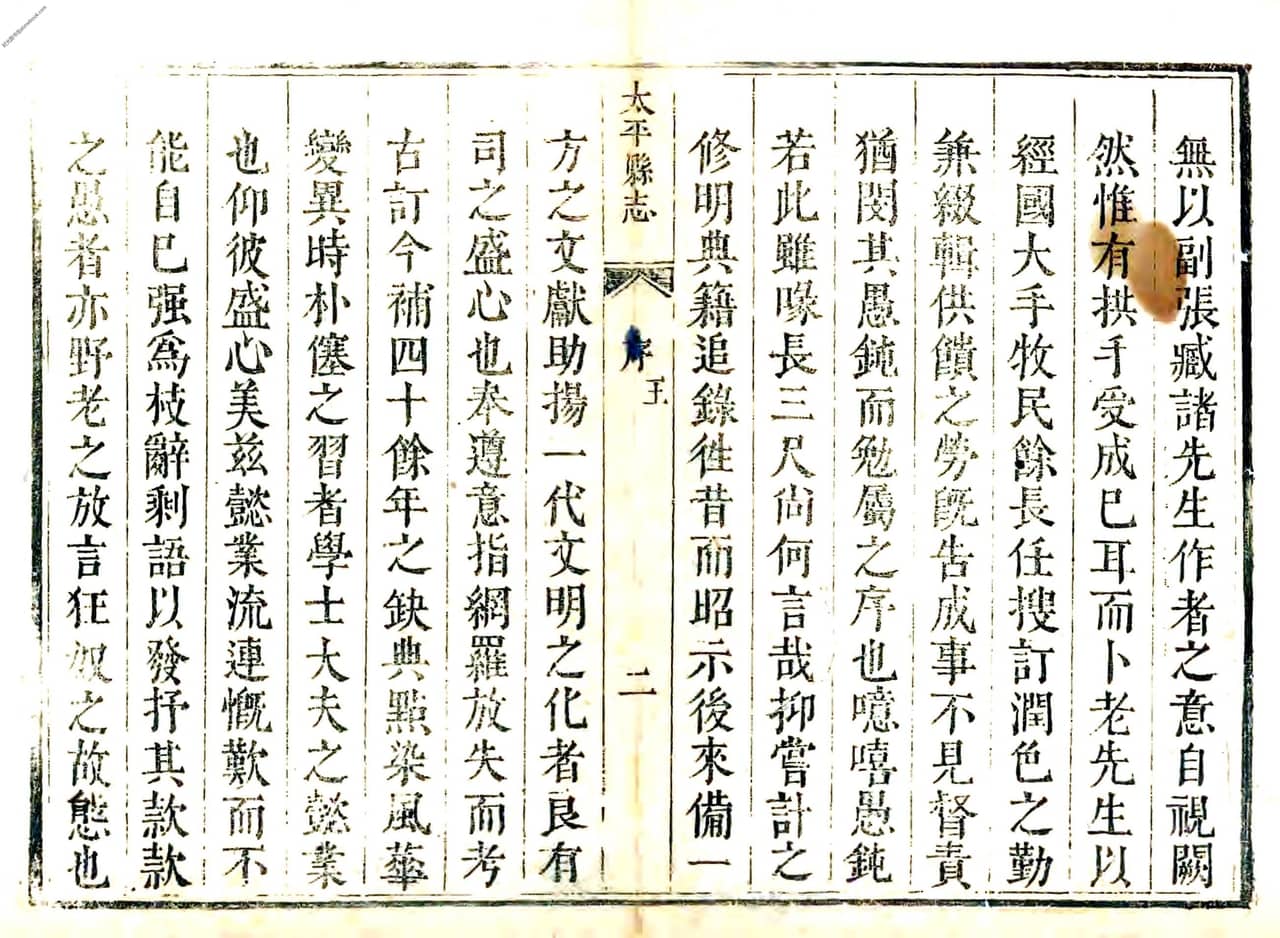 無以副張臧諸先生作者之意自視闕
然惟有拱手受成巳耳而卜老先生以
經國大手牧民餘長任搜訂潤色之勤
兼綴輯供饋之勞旣告成事不見督責
猶閔其愚鈍而勉屬之序也噫嘻愚鈍
若此雖喙長三尺尙何言哉抑嘗計之
修明典籍追錄徃昔而昭示後來備一
太平縣志
序
王
二
方之文獻助揚一代文明之化者良有
司之盛心也奉遵意指網羅放失而考
古訂今補四十餘年之缺典點染風華
變異時朴僿之習者學士大夫之懿業
也仰彼盛心美兹懿業流連慨歎而不
能自巳强爲枝辭剩語以發抒其款款
之愚者亦野老之放言狂奴之故態也